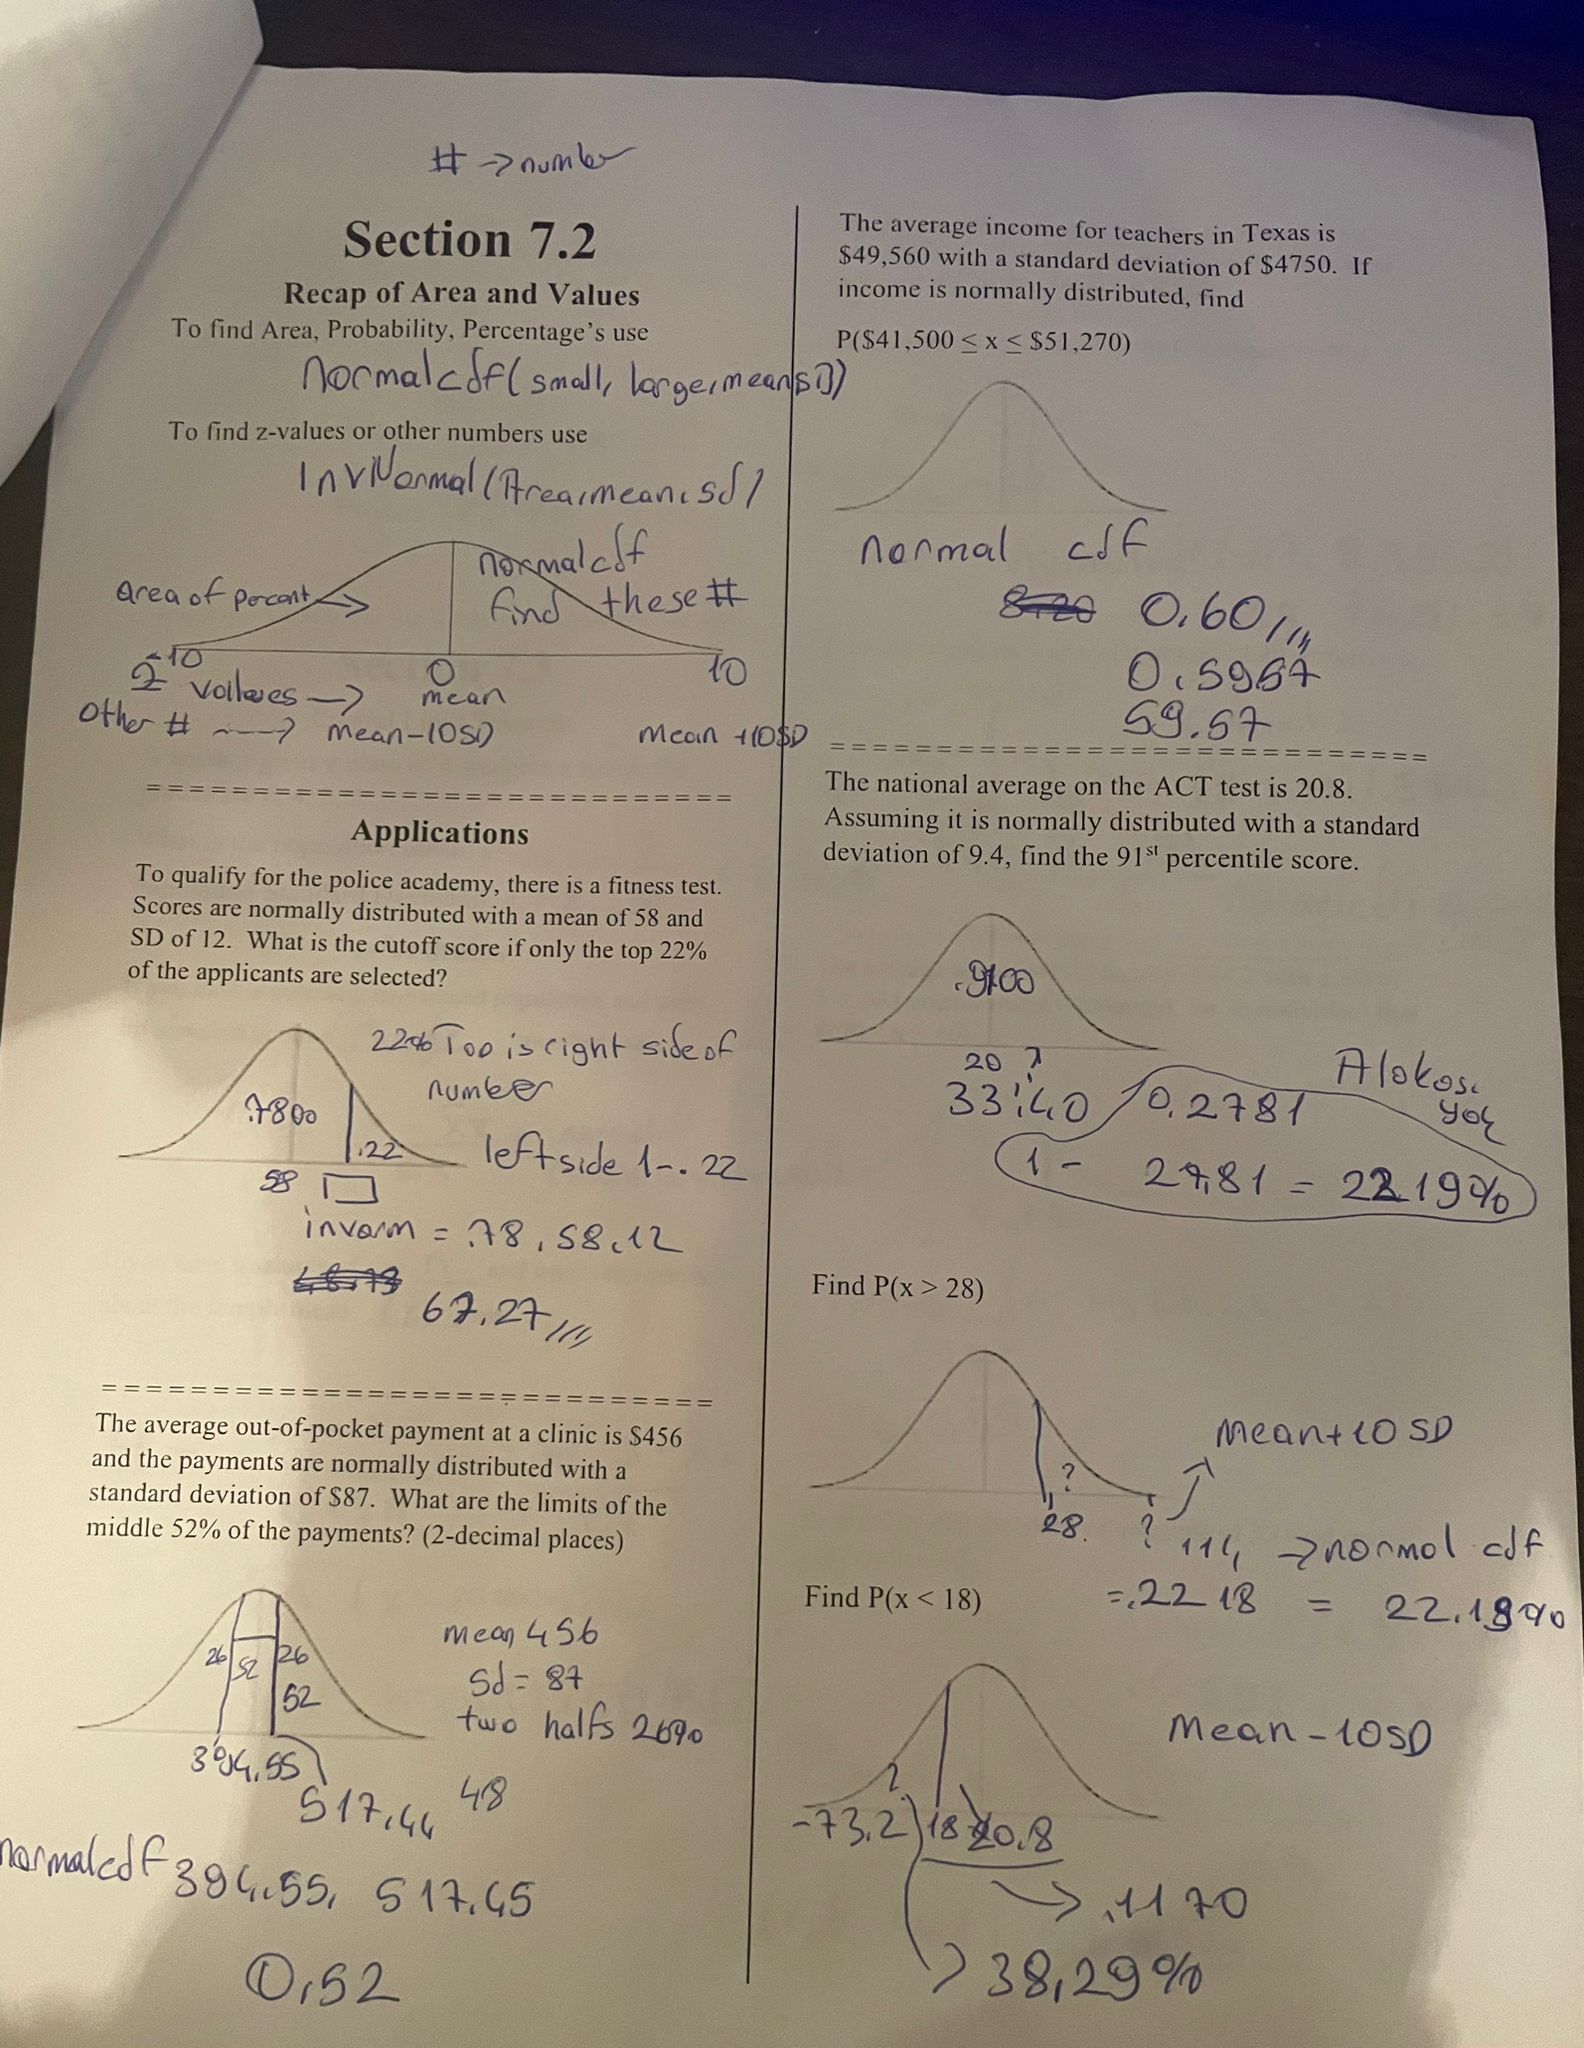 # → number
Section 7.2
Recap of Area and Values
To find Area, Probability, Percentage's use
normalcdf( small, large, mean SD)
To find z-values or other numbers use
InvNormal (Area, mean, sd)
normalcdf
area of percant →
find these #
-10 0 10
Z mean
Other # → mean-10SD mean +10SD
============================
Applications
To qualify for the police academy, there is a fitness test.
Scores are normally distributed with a mean of 58 and
SD of 12. What is the cutoff score if only the top 22%
of the applicants are selected?
22% Top is right side of
number
.7800
.22
left side 1-.22
58
invorm = .78, 58, 12
67.27
============================
The average out-of-pocket payment at a clinic is $456
and the payments are normally distributed with a
standard deviation of $87. What are the limits of the
middle 52% of the payments? (2-decimal places)
mean 456
26 52 26
sd = 87
52
two halfs 26%
394.55
517,44 48
normalcdf 394.55, 517.45
0,52
The average income for teachers in Texas is
$49,560 with a standard deviation of $4750. If
income is normally distributed, find
P($41,500 ≤ x ≤ $51,270)
normal cdf
0.60
0.5957
59.57
============================
The national average on the ACT test is 20.8.
Assuming it is normally distributed with a standard
deviation of 9.4, find the 91st percentile score.
.9100
20 ?
33.40 0.2781 Alakası
yok
1 - 27,81 = 22.19%
Find P(x > 28)
mean+10 SD
?
28. ? 114, → normal cdf
=.2218 = 22.18%
Find P(x < 18)
Mean - 10SD
?
-73.2 18 20.8
→ .1170
38,29%